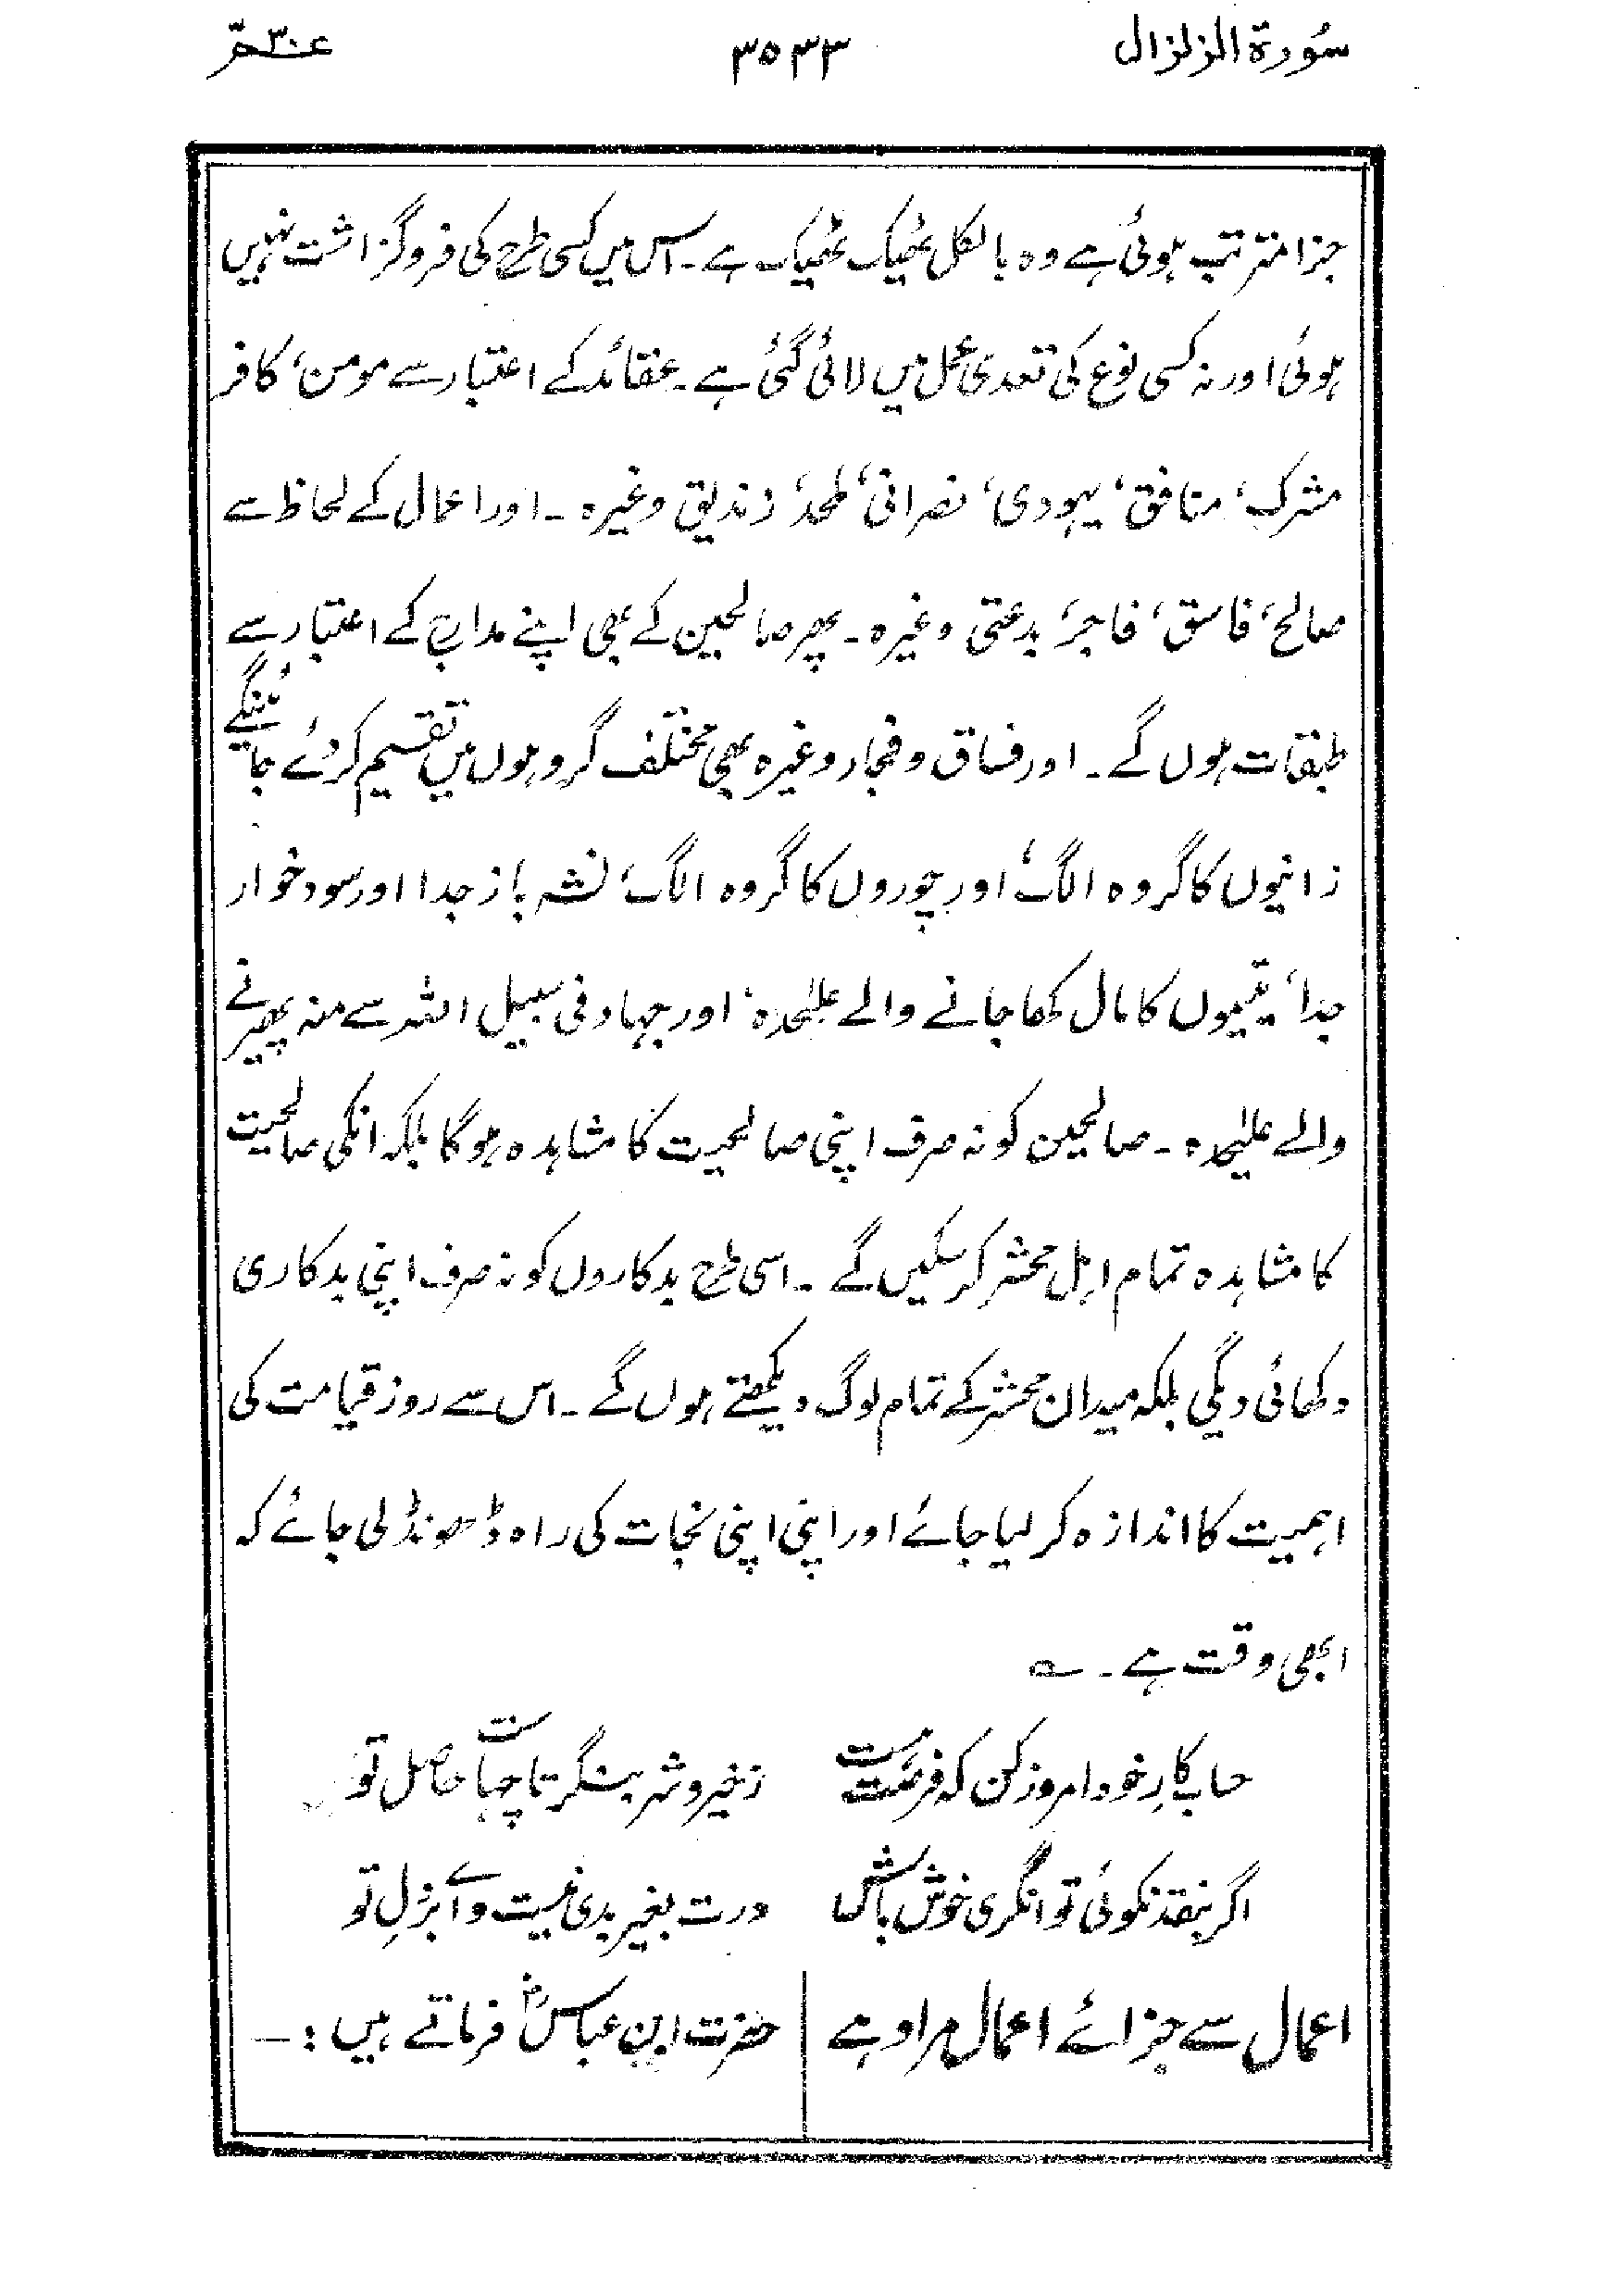 سُورۃ الزلزال
۳۵۳۳
عـــمّ ۳۰
جزا مترتب ہوئی ہے وہ بالکل ٹھیک ٹھیک ہے۔ اس میں کسی طرح کی فروگزاشت نہیں
ہوئی اور نہ کسی نوع کی تعدی عمل میں لائی گئی ہے۔ عقائد کے اعتبار سے مومن، کافر
مشرک، منافق، یہودی، نصرانی، ملحد، زندیق وغیرہ۔ اور اعمال کے لحاظ سے
صالح، فاسق، فاجر، بدعتی وغیرہ۔ پھر صالحین کے بھی اپنے مدارج کے اعتبار سے
طبقات ہوں گے۔ اور فساق و فجار وغیرہ بھی مختلف گروہوں میں تقسیم کردئے جائینگے
زانیوں کا گروہ الگ، اور چوروں کا گروہ الگ، نشہ باز جدا اور سود خوار
جدا، یتیموں کا مال کھا جانے والے علٰیحدہ، اور جہاد فی سبیل اللہ سے منہ پھیرنے
والے علٰیحدہ۔ صالحین کو نہ صرف اپنی صالحیت کا مشاہدہ ہوگا بلکہ انکی صالحیت
کا مشاہدہ تمام اہل محشر کرسکیں گے۔ اسی طرح بدکاروں کو نہ صرف اپنی بدکاری
دکھائی دیگی بلکہ میدان محشر کے تمام لوگ دیکھتے ہوں گے۔ اس سے روز قیامت کی
اہمیت کا اندازہ کرلیا جائے اور اپنی اپنی نجات کی راہ ڈھونڈلی جائے کہ
ابھی وقت ہے۔ ؎
حساب کارِ خود امروز کن کہ فرصت است زخیر و شر بنگر تا چہاست حاصل تو
اگر بنقد نکوئی تو انگری خوش باش ورت بغیر بدی نیست وائے بر دلِ تو
اعمال سے جزائے اعمال مراد ہے
حضرت ابن عباسؓ فرماتے ہیں :—